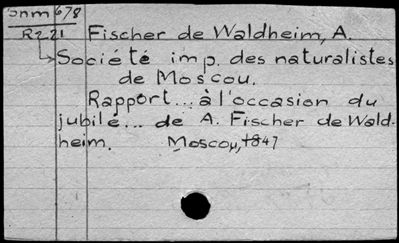 Snm 678
R2.21 Fischer de Waldheim, A.
Société imp. des naturalistes
de Moscou.
Rapport... à l'occasion du
jubilé... de A. Fischer de Wald-
heim. Moscou, 1847